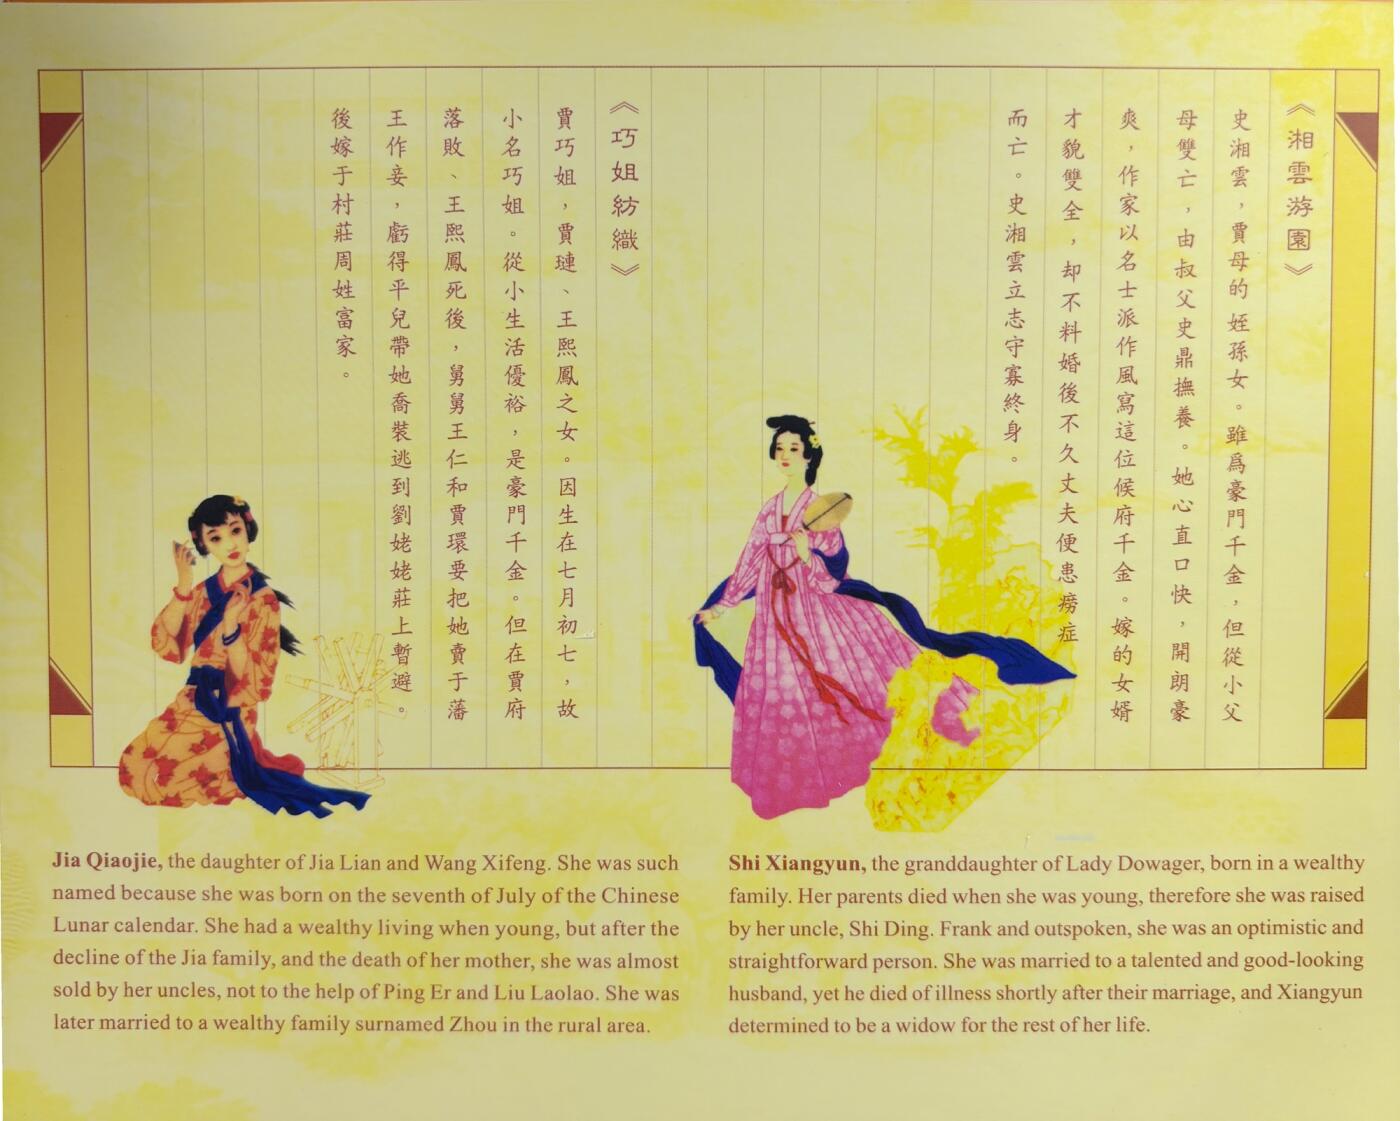 《湘雲游園》
史湘雲，賈母的姪孫女。雖爲豪門千金，但從小父
母雙亡，由叔父史鼎撫養。她心直口快，開朗豪
爽，作家以名士派作風寫這位候府千金。嫁的女婿
才貌雙全，却不料婚後不久丈夫便患癆症
而亡。史湘雲立志守寡終身。
《巧姐紡織》
賈巧姐，賈璉、王熙鳳之女。因生在七月初七，故
小名巧姐。從小生活優裕，是豪門千金。但在賈府
落敗、王熙鳳死後，舅舅王仁和賈環要把她賣于藩
王作妾，虧得平兒帶她喬裝逃到劉姥姥莊上暫避。
後嫁于村莊周姓富家。
Jia Qiaojie, the daughter of Jia Lian and Wang Xifeng. She was such
named because she was born on the seventh of July of the Chinese
Lunar calendar. She had a wealthy living when young, but after the
decline of the Jia family, and the death of her mother, she was almost
sold by her uncles, not to the help of Ping Er and Liu Laolao. She was
later married to a wealthy family surnamed Zhou in the rural area.
Shi Xiangyun, the granddaughter of Lady Dowager, born in a wealthy
family. Her parents died when she was young, therefore she was raised
by her uncle, Shi Ding. Frank and outspoken, she was an optimistic and
straightforward person. She was married to a talented and good-looking
husband, yet he died of illness shortly after their marriage, and Xiangyun
determined to be a widow for the rest of her life.